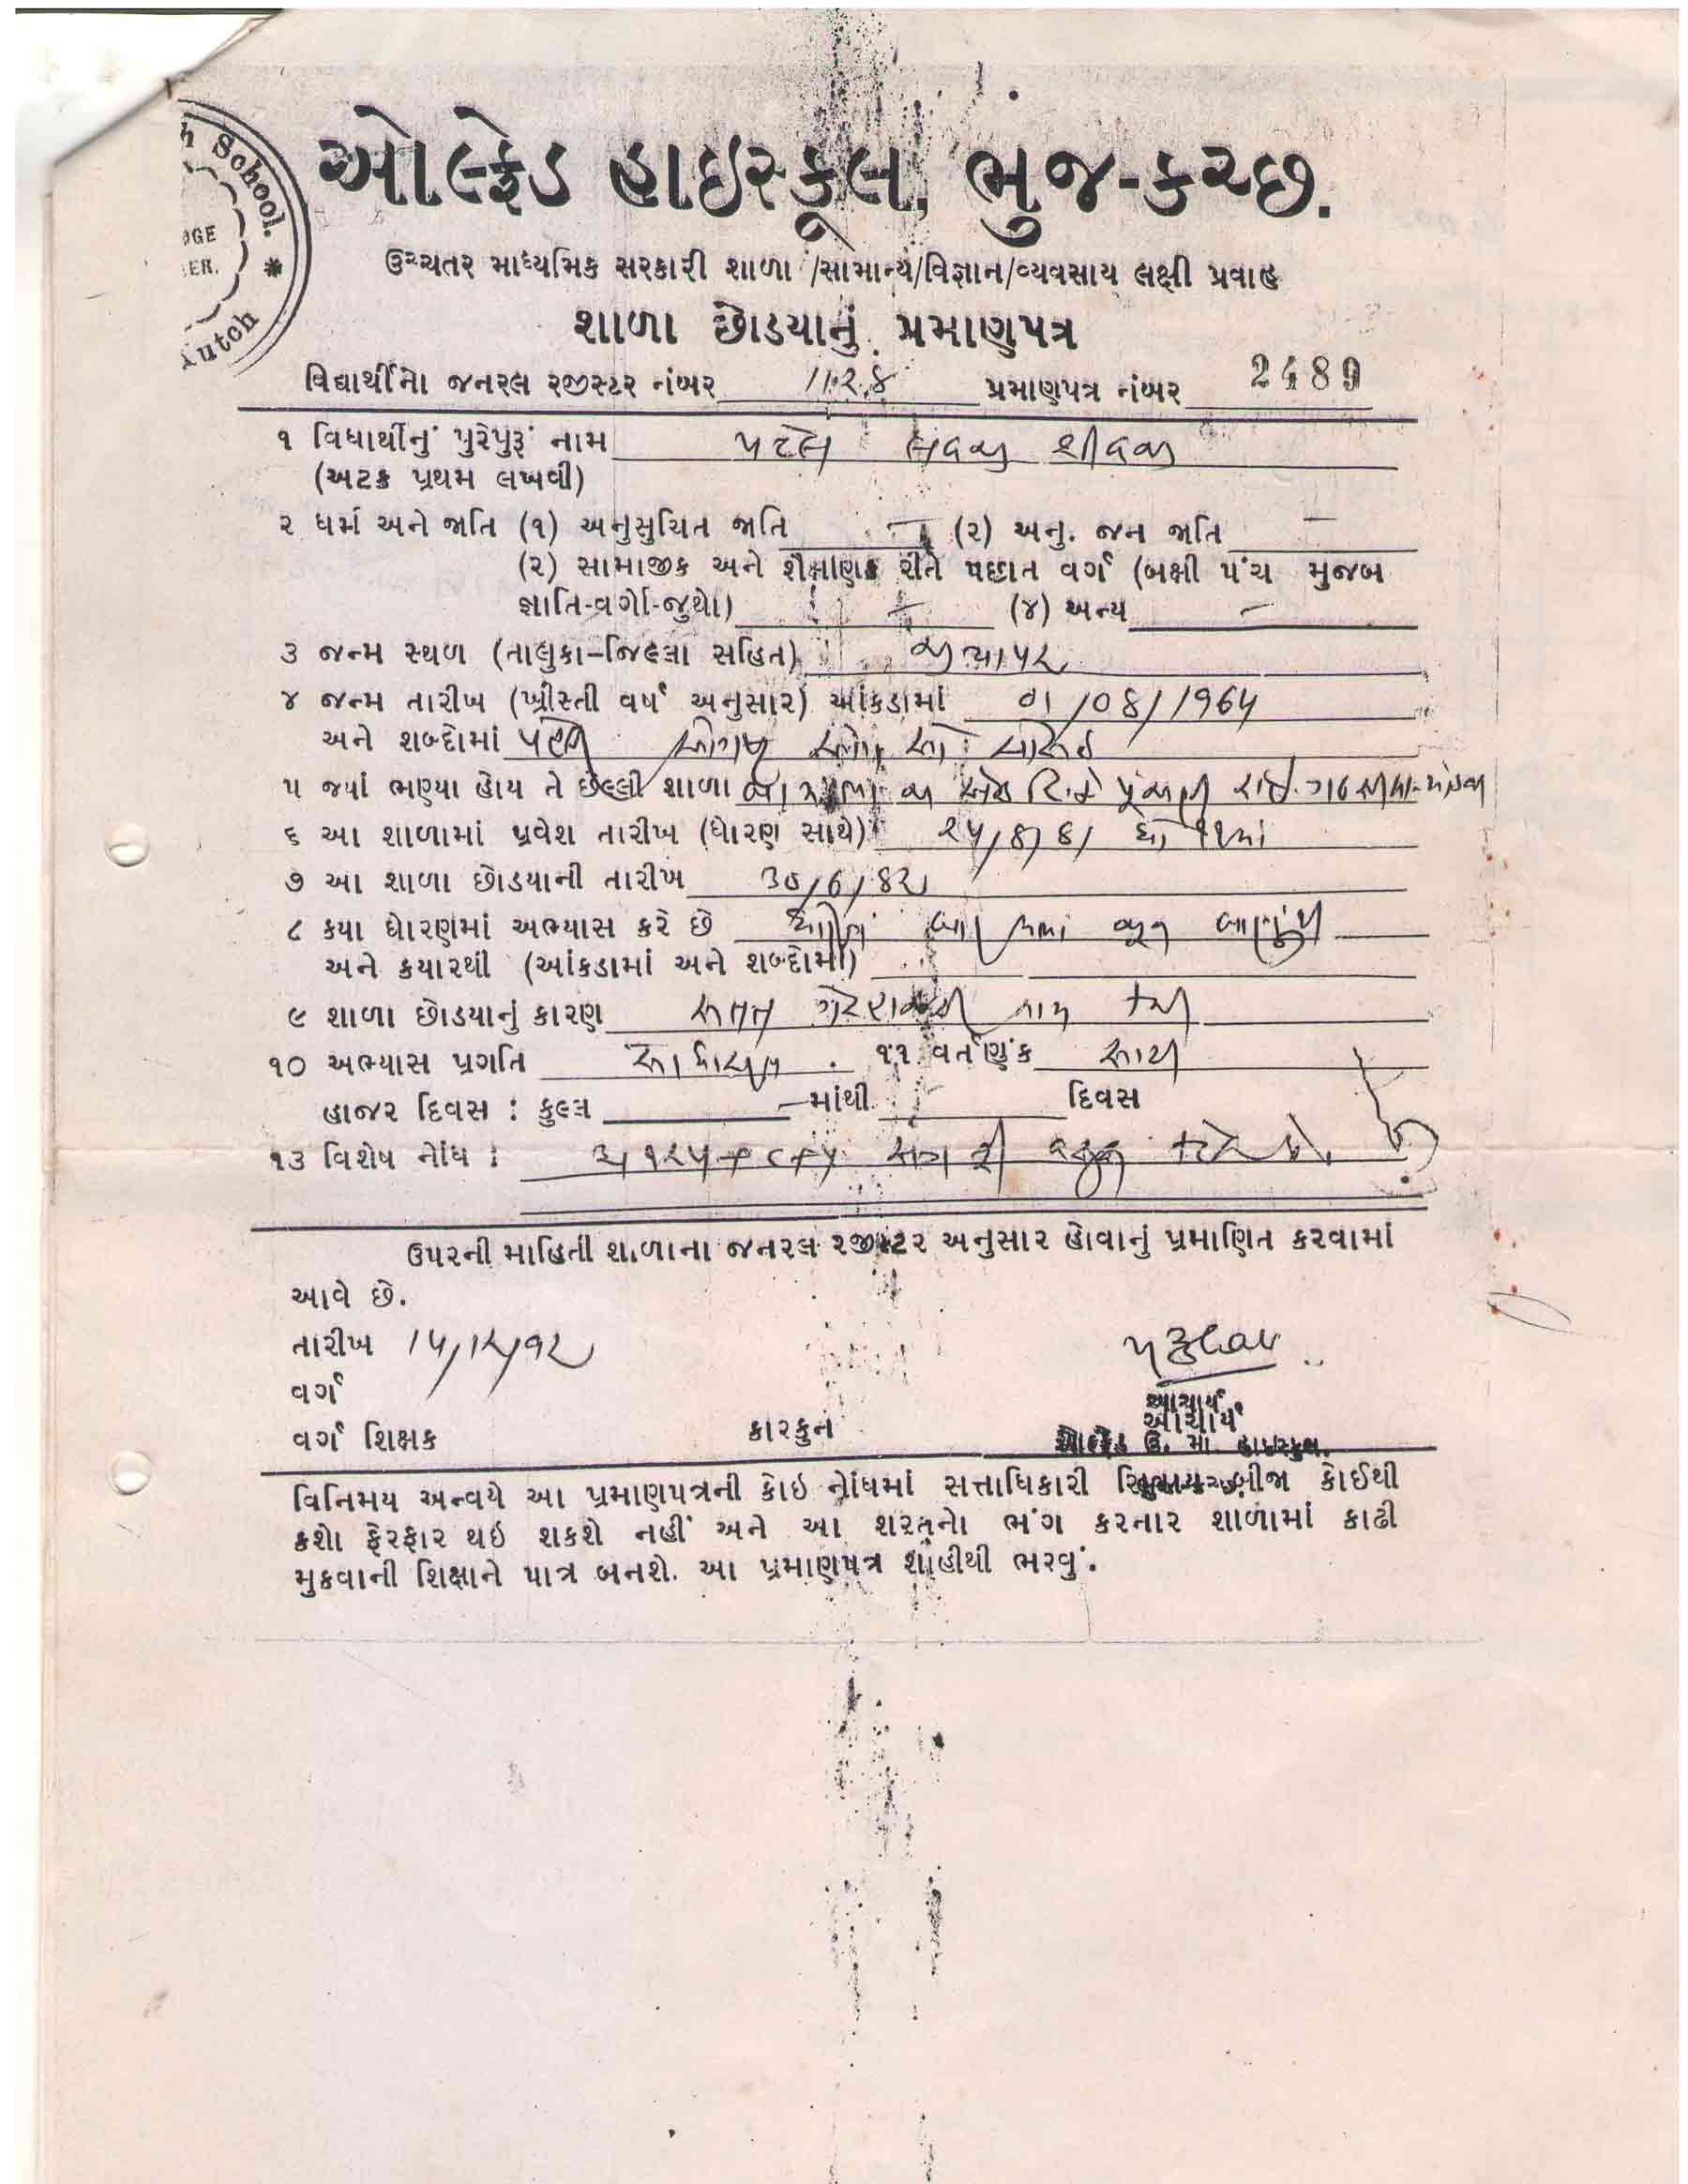 School.
DGE
ER.
Kutch
ઓલ્ફ્રેડ હાઇસ્કૂલ, ભુંજ-કચ્છ.
ઉચ્ચતર માધ્યમિક સરકારી શાળા /સામાન્ય/વિજ્ઞાન/વ્યવસાય લક્ષી પ્રવાહ
શાળા છોડયાનું પ્રમાણપત્ર
વિદ્યાર્થીનો જનરલ રજીસ્ટર નંબર 11૨૪ પ્રમાણપત્ર નંબર 2489
૧ વિદ્યાર્થીનું પુરેપુરૂં નામ પટેલ લવજી શીવજી
(અટક પ્રથમ લખવી)
૨ ધર્મ અને જાતિ (૧) અનુસુચિત જાતિ — (૨) અનુ. જન જાતિ —
(૨) સામાજીક અને શૈક્ષણિક રીતે પછાત વર્ગ (બક્ષી પંચ મુજબ
જ્ઞાતિ-વર્ગો-જુથો) — (૪) અન્ય —
૩ જન્મ સ્થળ (તાલુકા-જિલ્લા સહિત) જીયાપર
૪ જન્મ તારીખ (ખ્રીસ્તી વર્ષ અનુસાર) આંકડામાં 01/08/1964
અને શબ્દોમાં પહેલી ઓગષ્ટ
૫ જ્યાં ભણ્યા હોય તે છેલ્લી શાળા
૬ આ શાળામાં પ્રવેશ તારીખ (ધોરણ સાથે) ૨૫/8/8/ ધો ૧૧માં
૭ આ શાળા છોડયાની તારીખ 30/6/82
૮ કયા ધોરણમાં અભ્યાસ કરે છે ધોરણ બારમાં જૂન
અને કયારથી (આંકડામાં અને શબ્દોમાં)
૯ શાળા છોડયાનું કારણ સતત ગેરહાજરી નામ કમી
૧૦ અભ્યાસ પ્રગતિ સાધારણ ૧૧ વર્તણુંક સારી
હાજર દિવસ : કુલ્લ — માંથી — દિવસ
૧૩ વિશેષ નોંધ :
ઉપરની માહિતી શાળાના જનરલ રજીસ્ટર અનુસાર હોવાનું પ્રમાણિત કરવામાં
આવે છે.
તારીખ 14/12/92
વર્ગ
આચાર્ય
આચાર્ય
વર્ગ શિક્ષક કારકુન
ઓલ્ફ્રેડ ઉ. મા. હાઇસ્કુલ
વિનિમય અન્વયે આ પ્રમાણપત્રની કોઇ નોંધમાં સત્તાધિકારી સિવાય બીજા કોઈથી
કશો ફેરફાર થઇ શકશે નહીં અને આ શરતનો ભંગ કરનાર શાળામાં કાઢી
મુકવાની શિક્ષાને પાત્ર બનશે. આ પ્રમાણપત્ર શાહીથી ભરવું.